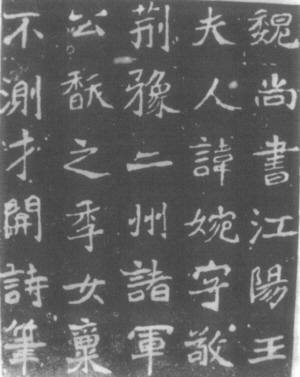 魏尚書江陽王
夫人諱婉字敬
荊豫二州諸軍
公馛之季女稟
不測才開詩筆